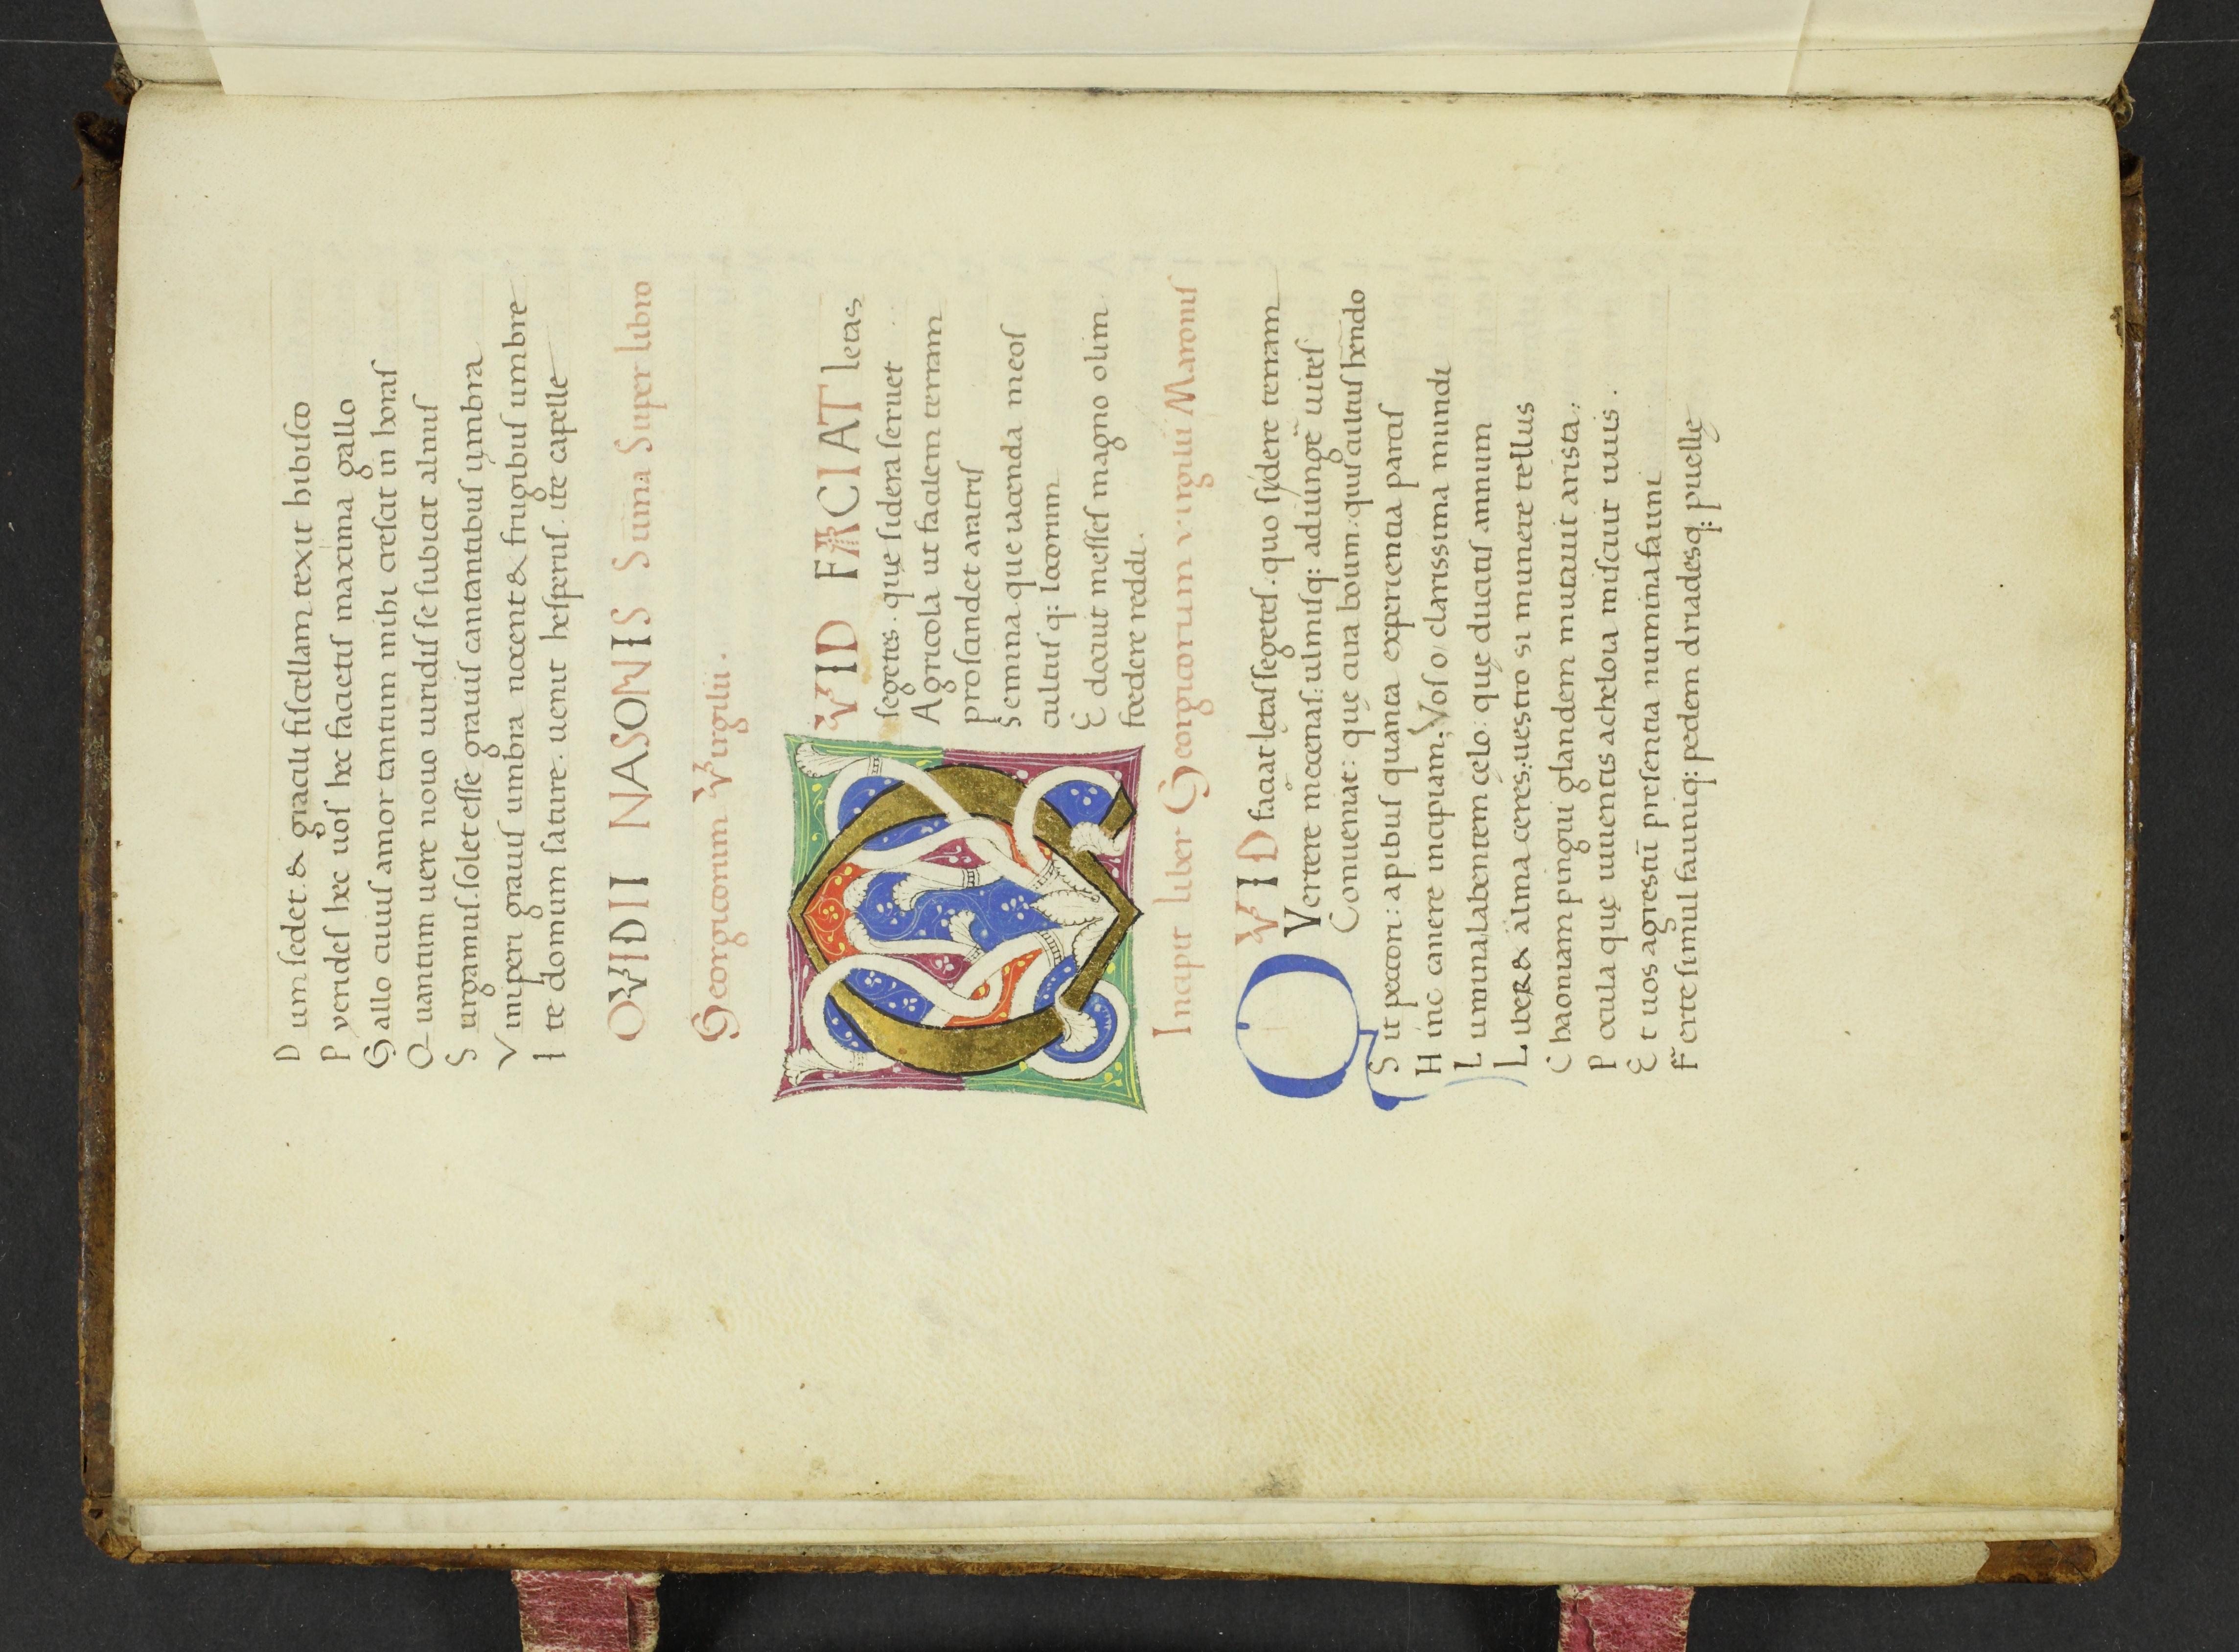 D um sedet. & gracili fiscellam texit hibisco
P yerides hęc uos hęc facietis maxima gallo
G allo cuius amor tantum mihi crescit in horas
Q uantum uere nouo uiridis se subicit alnus
S urgamus. solet esse grauis cantantibus ymbra
V iniperi grauis umbra nocent & frugibus umbre
I te domum sature. uenit hesperus. ite capelle
OVIDII NASONIS Suma Super libro
Georgicorum Virgilii.
QVID FACIAT letas
segetes. quę sidera seruet
Agricola ut facilem terram
proscindet aratris
Semina que iacenda meos
cultus q: locorum
E docuit messes magno olim
foedere reddi.
Incipit liber Georgicorum virgilii Maronis
QVID faciat lętas segetes. quo sydere terram
Vertere mecenas: ulmisq: adiungē uites
Conueniat: quę cura boum: quis cultus hēndo
S it pecori: apibus quanta experientia parcis
H inc canere incipiam; Vos o clarissima mundi
L umina labentem cęlo: quę ducitis annum
L iber & alma ceres: uestro si munere tellus
C haoniam pingui glandem mutauit arista:
P ocula quę inuentis acheloia miscuit uuis.
E t uos agrestū presentia numina fauni
F erte simul fauniq: pedem driadesq: puellę